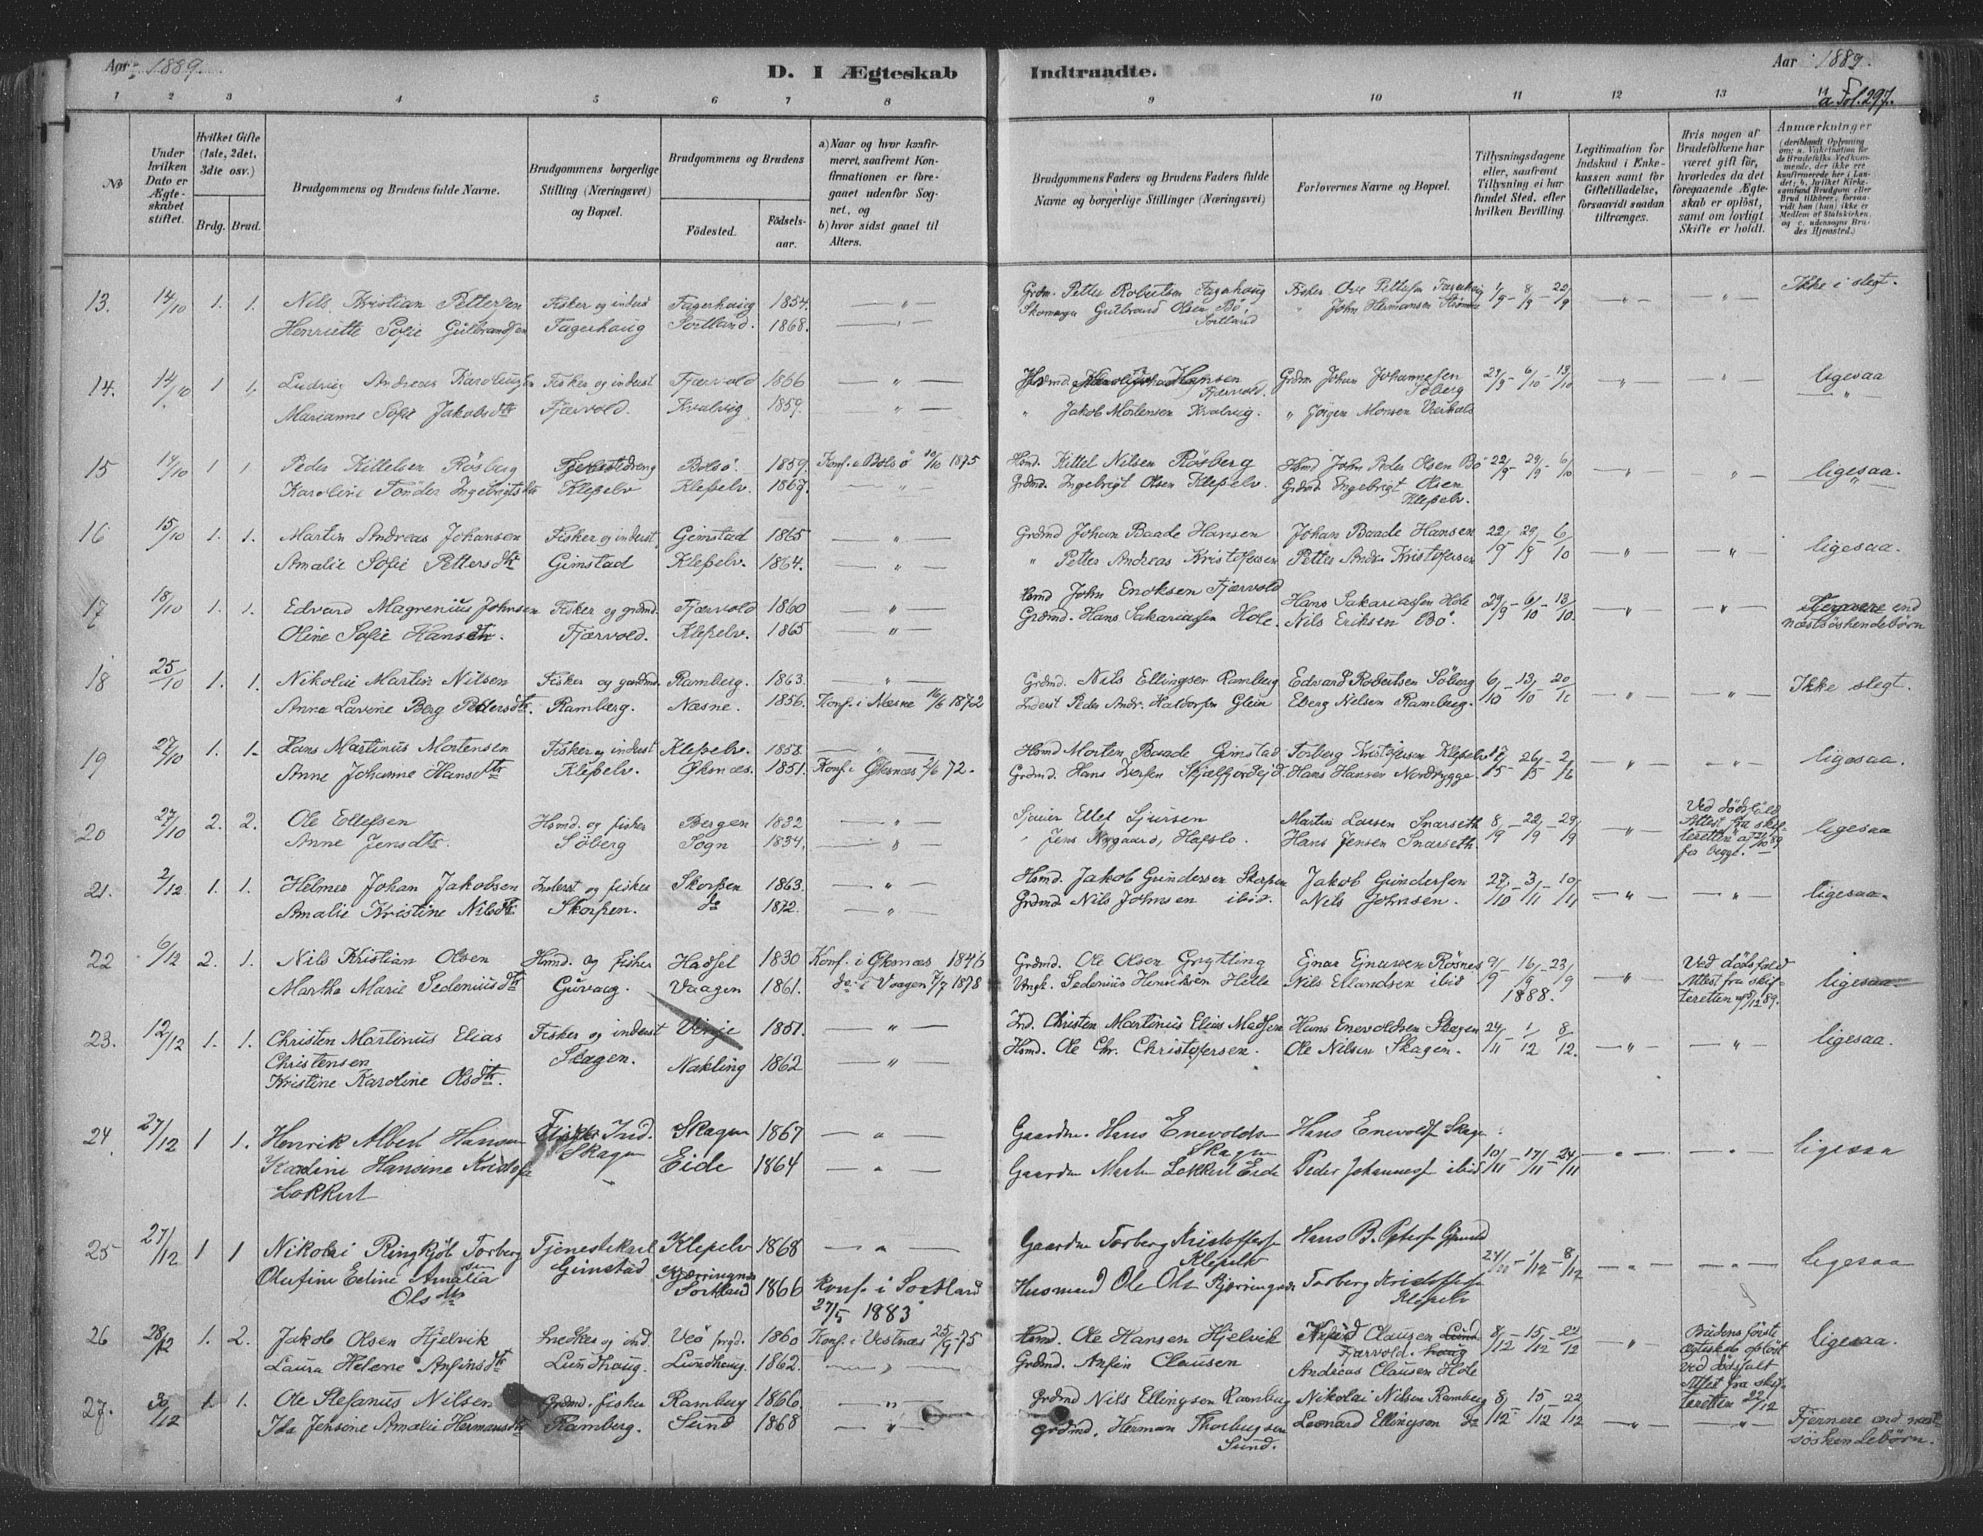 Aar 1889.
D. I Ægteskab Indtraadte.
Aar 1889.
a. Fol. 297.
1 2 3 4 5 6 7 8 9 10 11 12 13 14
No
Under hvilken Dato er Ægteskabet stiftet.
Hvilket Gifte (1ste, 2det, 3die osv.)
Brdg. Brud.
Brudgommens og Brudens fulde Navne.
Brudgommens borgerlige Stilling (Næringsvei) og Bopæl.
Brudgommens og Brudens
Födested. Födsels-aar.
a) Naar og hvor konfirmeret, saafremt Konfirmationen er foregaaet udenfor Sognet, og
b) hvor sidst gaaet til Alters.
Brudgommens Faders og Brudens Faders fulde Navne og borgerlige Stillinger (Næringsvei)
Forlovernes Navne og Bopæl.
Tillysningsdagene eller, saafremt Tillysning ei har fundet Sted, efter hvilken Bevilling.
Legitimation for Indskud i Enkekassen samt for Giftetilladelse, forsaavidt saadan tiltrænges.
Hvis nogen af Brudefolkene har været gift för, hvorledes da det foregaaende Ægteskab er oplöst, samt om lovligt Skifte er holdt.
Anmærkninger
13. 14/10 1. 1. Nils Kristian Pettersen Fisker og inderst Fagerhaug 1854. — " — Grdm. Petter Robertsen Fagerhaug Fisker Ove Pettersen Fagerhaug 1/9 - 8/9 - 22/9 — " — — " — Ikke i slegt.
Henriette Sofie Gulbrandsen Fagerhaug Sortland. 1868. — " — Skomager Gulbrand Olsen Bö, Sortland " John Hermansen
14. 14/10 1 1. Ludvig Andreas Karoliussen Fisker og inderst Fjærvold 1866 — " — Hansen Fjærvold. Grdm. Johan Johannesen Söberg 29/9 - 6/10 - 13/10 — " — — " — ligesaa
Marianne Sofie Jakobsdtr Fjærvold. Kvalvig 1859. — " — " Jakob Mortensen Kvalvig. " Jörgen Monsen
15 14/10 1 1. Peder Kittelsen Rösberg Bolsö. 1859. Konf. i Bolsö 10/10 1875 Hsmd. Kittel Nilsen Rösberg Hsmd John Peder Olsen Bö 22/9 - 29/9 - 6/10 — " — — " — ligesaa.
Karoline Tonder Ingebrigtsdtr Klepelv Klepelv. 1867. — " — Grdmd. Ingebrigt Olsen Klepelv. Grdmd Ingebrigt Olsen Klepelv.
16 15/10 1. 1. Martin Andreas Johansen Fisker og inderst Gimstad 1865 — " — Grdmd Johan Baade Hansen Johan Baade Hansen 22/9 - 29/9 - 6/10 — " — — " — ligesaa.
Amalie Sofie Pettersdtr Gimstad Klepelv. 1864. — " — " Petter Andreas Kristofersen Petter Andr. Kristofersen
17 18/10 1. 1. Edvard Magrenius Johnsen Fisker og grdmd. Fjærvold 1860 — " — Hsmd John Enoksen Fjærvold Hans Sakariassen Hole 29/9 - 6/10 - 13/10 — " — — " — Fjernere end næstsöskendebörn
Oline Sofie Hansdtr. Fjærvold. Klepelv. 1865 — " — Grdmd. Hans Sakariassen Hole. Nils Eriksen Bö.
18 25/10 1. 1. Nikolai Martin Nilsen Fisker og gaardmd. Ramberg. 1863. — " — Grdmd. Nils Ellingsen Ramberg Edvard Robertsen Söberg 6/10 - 13/10 - 20/10 — " — — " — Ikke slegt.
Anne Lavine Berg Pettersdtr. Ramberg. Næsne. 1856. Konf. i Næsne 16/6 1872 Inderst Peder Andr. Haldorsen Glein Eberg Nielsen Ramberg.
19 27/10 1. 1. Hans Martinus Mortensen Fisker og inderst Klepelv. 1858. — " — Hsmd Morten Baade Gimstad Torberg Kristofersen Klepelv 17/5 - 26/5 - 2/6 — " — — " — ligesaa.
Anne Johanne Hansdtr Klepelv. Öksnæs. 1851. Konf. i Öksnæs 2/6 72. Grdmd. Hans Hans Hansen Nordrygge.
20 27/10 2. 2. Ole Ellefsen Hsmd. og fisker Bergen 1832 — " — Ellef Sjursen Martin Larsen Snarseth 8/9 - 22/9 - 29/9 — " — Ved dödsfald Attest fra skifteretten af 21/10 89 for begge. ligesaa
Anne Jensdtr. Söberg Sogn 1834. — " — " Jens Nygaard, Hafslo. Hans Jensen Snarseth.
21. 2/12 1. 1. Helmer Johan Jakobsen Inderst og fisker Skorpen 1863. — " — Hsmd. Jakob Gundersen Skorpen Jakob Gundersen 27/10 - 3/11 - 10/11 — " — — " — ligesaa.
Amalie Kristine Nilsdtr. Skorpen. do 1872. — " — Grdmd Nils Johnsen ibid. Nils Johnsen.
22 6/12 2. 1. Nils Kristian Olsen Hsmd. og fisker Hadsel 1830 Konf. i Öksnæs 1846 Grdmd. Ole Olsen Grytting Einar Ejnarsen Rösnes 9/9 - 16/9 - 23/9 1888. — " — Ved dödsfald Attest fra skifteretten af 5/12 89. ligesaa
Martha Marie Sedeniusdtr Guvaag. Vaagen 1861. do i Vaagen 7/7 1878 Sedenius Henriksen Helle Nils Ellandsen ibid
23. 12/12 1. 1. Christen Martinus Elias Christensen Fisker og inderst 1851. — " — Ind. Christen Martinus Elias Madsen Hans Enevoldsen Skagen 24/11 - 1/12 - 8/12. — " — — " — ligesaa.
Kristine Karoline Olsdtr. Skagen. Nakling 1862 — " — Hsmd. Ole Chr. Christofersen. Ole Nilsen Skagen.
24 27/12 1 1. Henrik Albert Hansen Fisker Ind. Skagen Skagen 1867 — " — Gaardm. Hans Enevolds Skagen Hans Enevolds Skagen 10/11 - 17/11 - 24/11 — " — — " — ligesaa
Karoline Hansine Lokkert Eide 1864 — " — Gaardm Lokkert Eide Peder Johannes ibid
25 27/12 1 1 Nikolai Ringkjöb Torbergsen Tjenestekarl Gimstad Klepelv 1868 — " — Gaardm Torberg Kristoffers Klepelv Hans B. Peters Gimstad 24/11 - 1/12 - 8/12 — " — — " — ligesaa
Olufine Edine Amalia Olsdtr Kjærringnes Sortland 1866 Konf. i Sortland 27/5 1883 Husmand Ole Ols Torberg Kristoffers Klepelv
26 28/12 1. 2. Jakob Olsen Hjelvik Snedker og ind. Veö prgd. 1860 Konf. i Vestnæs 25/9 75 Hsmd. Ole Hansen Hjelvik Clausen Lund Fjærvold. 8/12 - 15/12 - 22/12 Brudens förste Ægteskab oplöst ved dödsfald Attest fra skifteretten 22/12 ligesaa.
Laura Helene Anfinsdtr Lundhaug. Lundhaug. 1862. — " — Grdmd. Anfin Clausen Andreas Clausen Hole
27. 30/12 1. 1. Ole Stefanus Nilsen Grdmd. fisker Ramberg 1866. — " — Grdmd Nils Ellingsen Ramberg Nikolai Nilsen Ramberg 8/12 - 15/12 - 22/12 — " — — " — Fjernere end næstsöskendebörn.
Ida Jensine Amalie Hermansdtr Ramberg. Sund 1868 — " — Grdmd. Herman Thorbergsen Sund. Leonard Ellingsen do